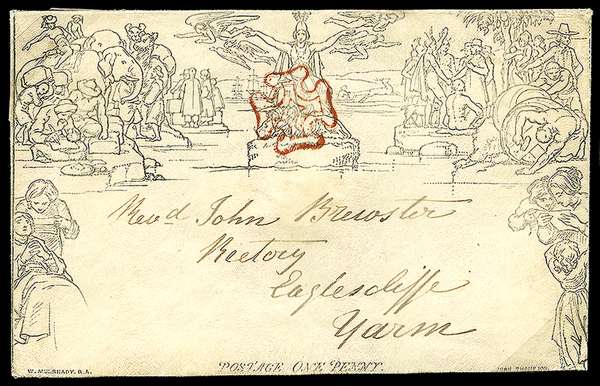 Revd John Brewster
Rectory
Eaglescliffe
Yarm
POSTAGE ONE PENNY.
W. MULREADY. R.A.
JOHN THOMPSON